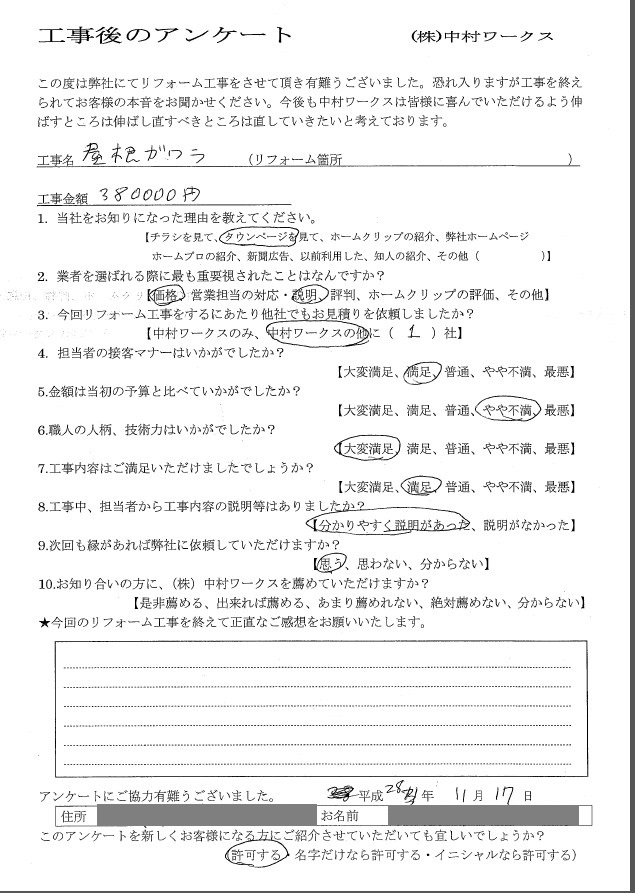 工事後のアンケート　(株)中村ワークス
この度は弊社にてリフォーム工事をさせて頂き有難うございました。恐れ入りますが工事を終え
られてお客様の本音をお聞かせください。今後も中村ワークスは皆様に喜んでいただけるよう伸
ばすところは伸ばし直すべきところは直していきたいと考えております。
工事名 屋根ガワラ （リフォーム箇所　　　）
工事金額 380000円
1. 当社をお知りになった理由を教えてください。
【チラシを見て、タウンページを見て、ホームクリップの紹介、弊社ホームページ
ホームプロの紹介、新聞広告、以前利用した、知人の紹介、その他（　　　）】
2. 業者を選ばれる際に最も重要視されたことはなんですか？
【価格、営業担当の対応・説明、評判、ホームクリップの評価、その他】
3. 今回リフォーム工事をするにあたり他社でもお見積りを依頼しましたか？
【中村ワークスのみ、中村ワークスの他に（ 1 ）社】
4. 担当者の接客マナーはいかがでしたか？
【大変満足、満足、普通、やや不満、最悪】
5.金額は当初の予算と比べていかがでしたか？
【大変満足、満足、普通、やや不満、最悪】
6.職人の人柄、技術力はいかがでしたか？
【大変満足、満足、普通、やや不満、最悪】
7.工事内容はご満足いただけましたでしょうか？
【大変満足、満足、普通、やや不満、最悪】
8.工事中、担当者から工事内容の説明等はありましたか？
【分かりやすく説明があった、説明がなかった】
9.次回も縁があれば弊社に依頼していただけますか？
【思う、思わない、分からない】
10.お知り合いの方に、（株）中村ワークスを薦めていただけますか？
【是非薦める、出来れば薦める、あまり薦めれない、絶対薦めない、分からない】
★今回のリフォーム工事を終えて正直なご感想をお願いいたします。
アンケートにご協力有難うございました。 平成28年 11月 17日
住所　お名前
このアンケートを新しくお客様になる方にご紹介させていただいても宜しいでしょうか？
（許可する・名字だけなら許可する・イニシャルなら許可する）